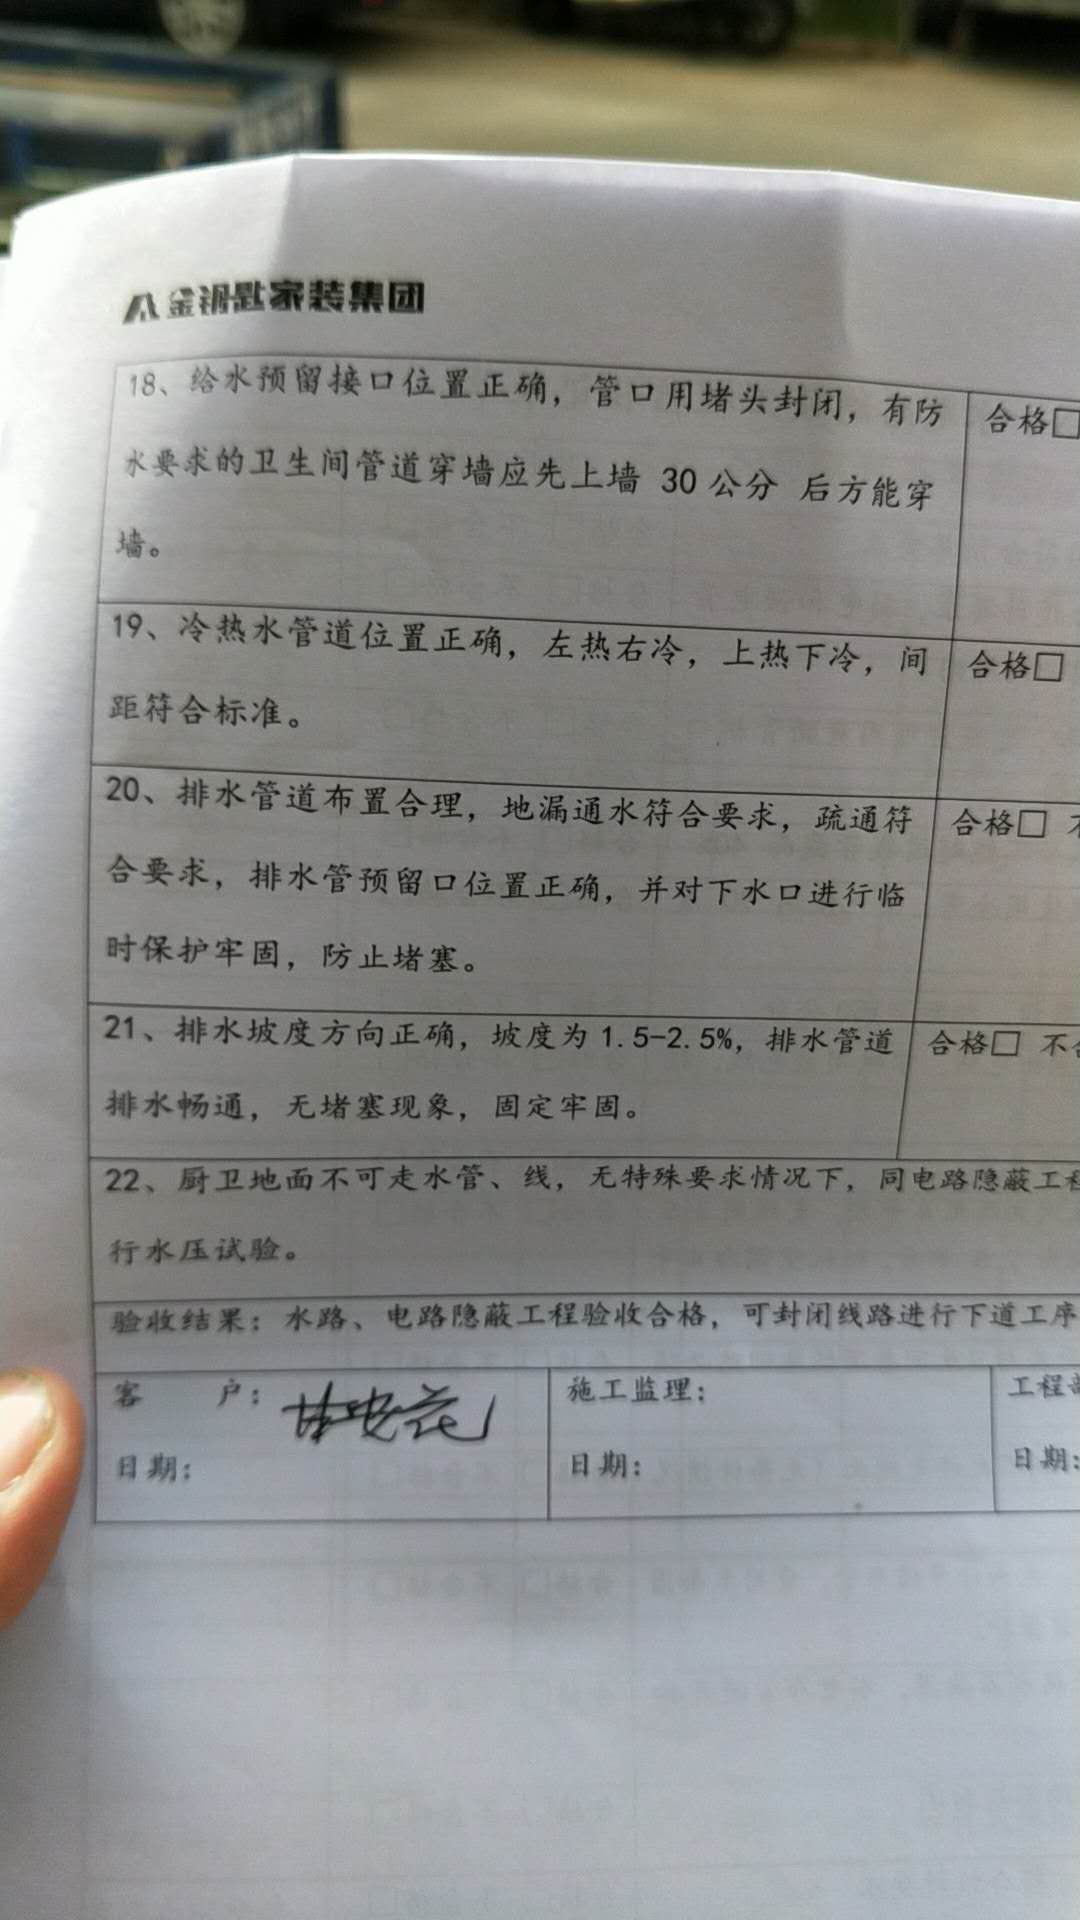 金钥匙家装集团
18、给水预留接口位置正确，管口用堵头封闭，有防
合格□
水要求的卫生间管道穿墙应先上墙 30 公分 后方能穿
墙。
19、冷热水管道位置正确，左热右冷，上热下冷，间
合格□
距符合标准。
20、排水管道布置合理，地漏通水符合要求，疏通符
合格□ 不
合要求，排水管预留口位置正确，并对下水口进行临
时保护牢固，防止堵塞。
21、排水坡度方向正确，坡度为1.5-2.5%，排水管道
合格□ 不合
排水畅通，无堵塞现象，固定牢固。
22、厨卫地面不可走水管、线，无特殊要求情况下，同电路隐蔽工程
行水压试验。
验收结果：水路、电路隐蔽工程验收合格，可封闭线路进行下道工序
客 户：
施工监理：
工程部
日期：
日期：
日期：